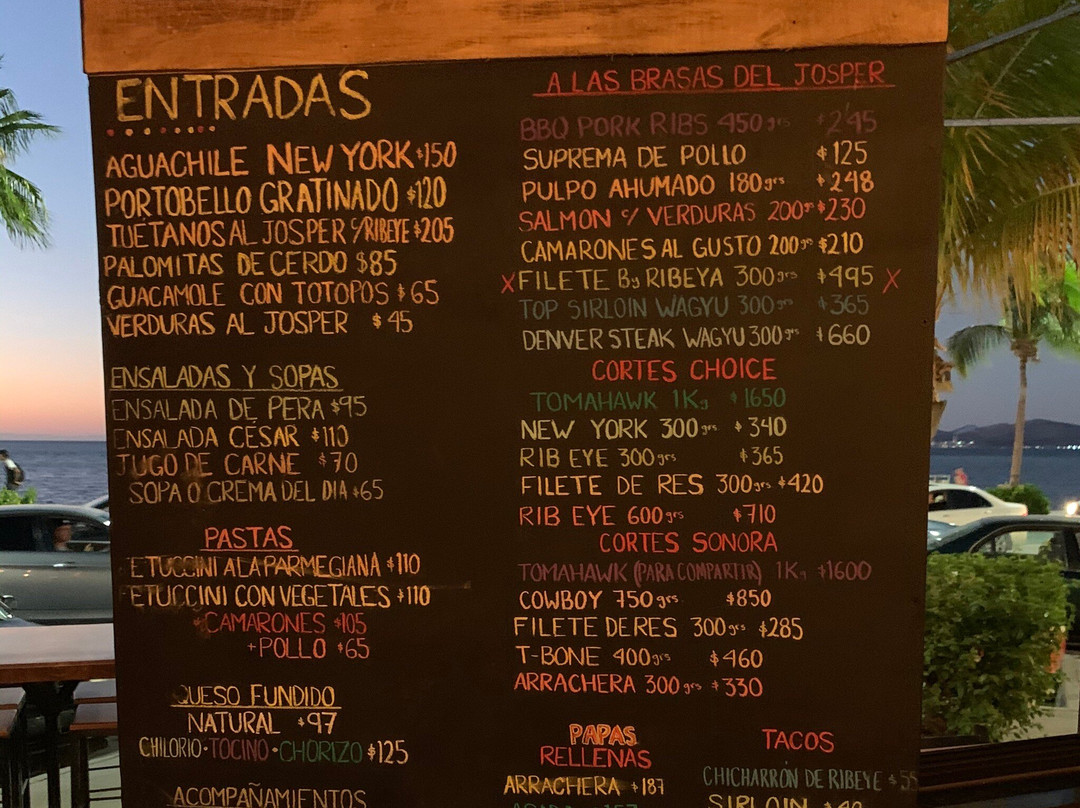 ENTRADAS
AGUACHILE NEW YORK $150
PORTOBELLO GRATINADO $120
TUETANOS AL JOSPER C/RIBEYE $205
PALOMITAS DE CERDO $85
GUACAMOLE CON TOTOPOS $65
VERDURAS AL JOSPER $45
ENSALADAS Y SOPAS
ENSALADA DE PERA $95
ENSALADA CÉSAR $110
JUGO DE CARNE $70
SOPA O CREMA DEL DIA $65
PASTAS
ETUCCINI A LA PARMEGIANA $110
ETUCCINI CON VEGETALES $110
+CAMARONES $105
+POLLO $65
QUESO FUNDIDO
NATURAL $97
CHILORIO·TOCINO·CHORIZO $125
ACOMPAÑAMIENTOS
A LAS BRASAS DEL JOSPER
BBQ PORK RIBS 450grs $245
SUPREMA DE POLLO $125
PULPO AHUMADO 180grs $248
SALMON C/ VERDURAS 200gs $230
CAMARONES AL GUSTO 200grs $210
X FILETE By RIBEYA 300grs $495 X
TOP SIRLOIN WAGYU 300grs $365
DENVER STEAK WAGYU 300grs $660
CORTES CHOICE
TOMAHAWK 1Kg $1650
NEW YORK 300grs $340
RIB EYE 300grs $365
FILETE DE RES 300grs $420
RIB EYE 600grs $710
CORTES SONORA
TOMAHAWK (PARA COMPARTIR) 1Kg $1600
COWBOY 750grs $850
FILETE DE RES 300grs $285
T-BONE 400grs $460
ARRACHERA 300grs $330
PAPAS
RELLENAS
ARRACHERA $187
TACOS
CHICHARRÓN DE RIBEYE $55
SIRLOIN